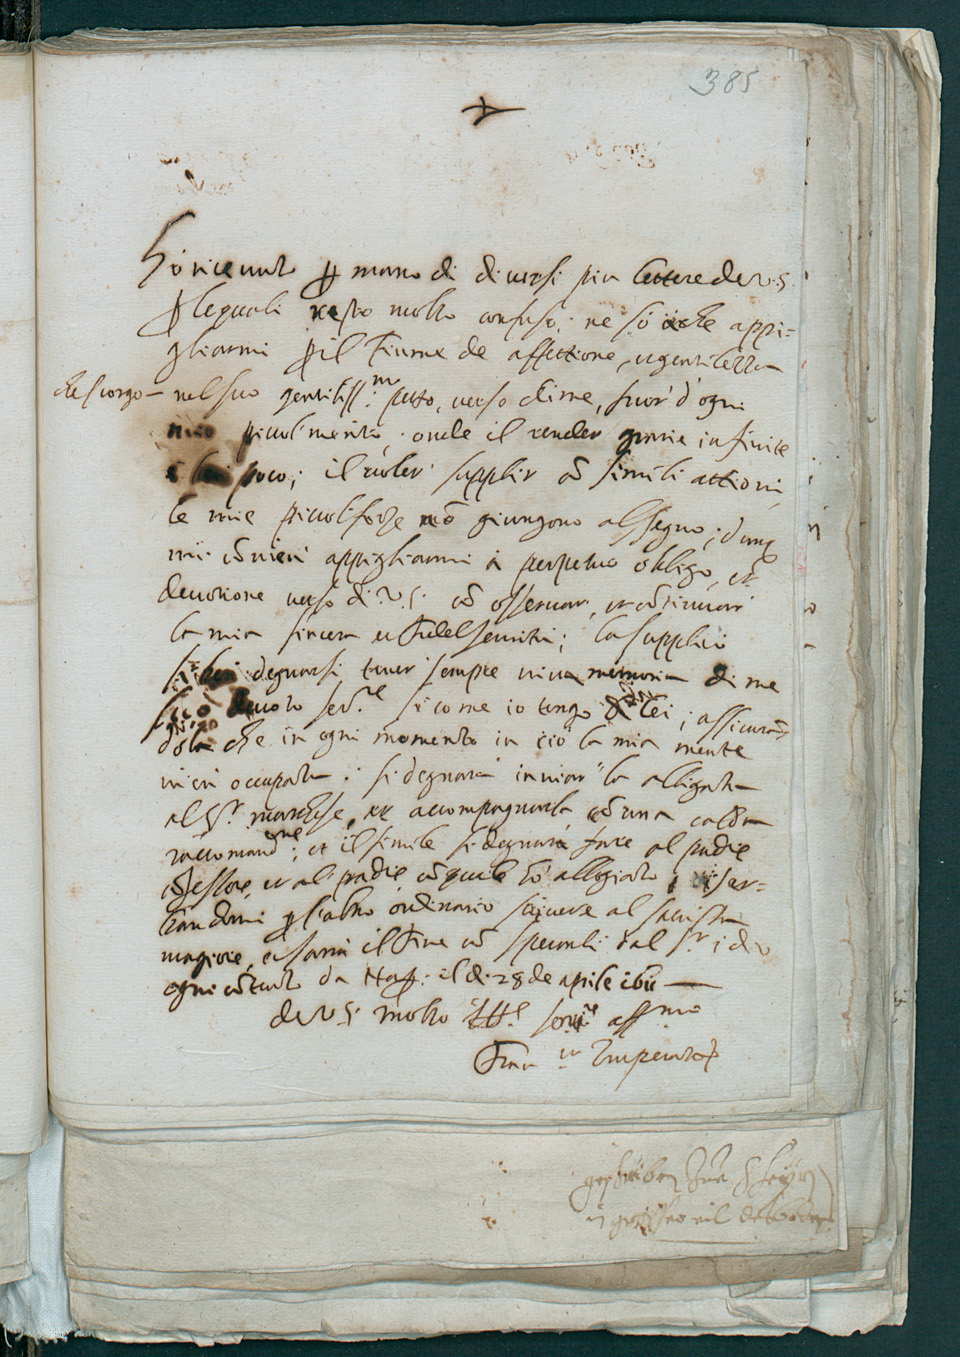 385
Hò ricevuto ꝑ mano di diversi piu lettere de V.S.
ꝑ lequali resto molto confuso; ne sò à che appi=
gliarmi ꝑ il fiume de affettione, et gentilezza
che scorgo – nel suo gentiliss.mo petto, verso di me, fuor d'ogni
mio picciol merito; onde il render gratie infinite
è poco; il voler supplir cõ simili attioni
le mie picciol forze nõ giungono al segno; dunq
mi cõvien appigliarmi à perpetuo obligo, et
devotione verso di V.S. cõ osservar, et cõtinuar
la mia sincera et fidel servitù; la supplico
degnarsi tener sempre viva memoria di me
suo devoto ser.re si come io tengo di lei; assicurã
dola che in ogni momento in ciò la mia mente
vien occupata. si degnarà inviar la alligata
al S.r marchese, et accompagnarla cõ una calda
raccomand.ne; et il simile si degnarà fare al padre
cõfessore, et al padre cõ quale sò alligiato; riser=
bandomi ꝑ l'altro ordinario scrivere al sacrista
magiore, et farrà il fine cõ
ogni cõtento da Nap. il dì 28 de aprile
de V.S. molto Ill.e ser.re aff.mo
Fran.co Imperato